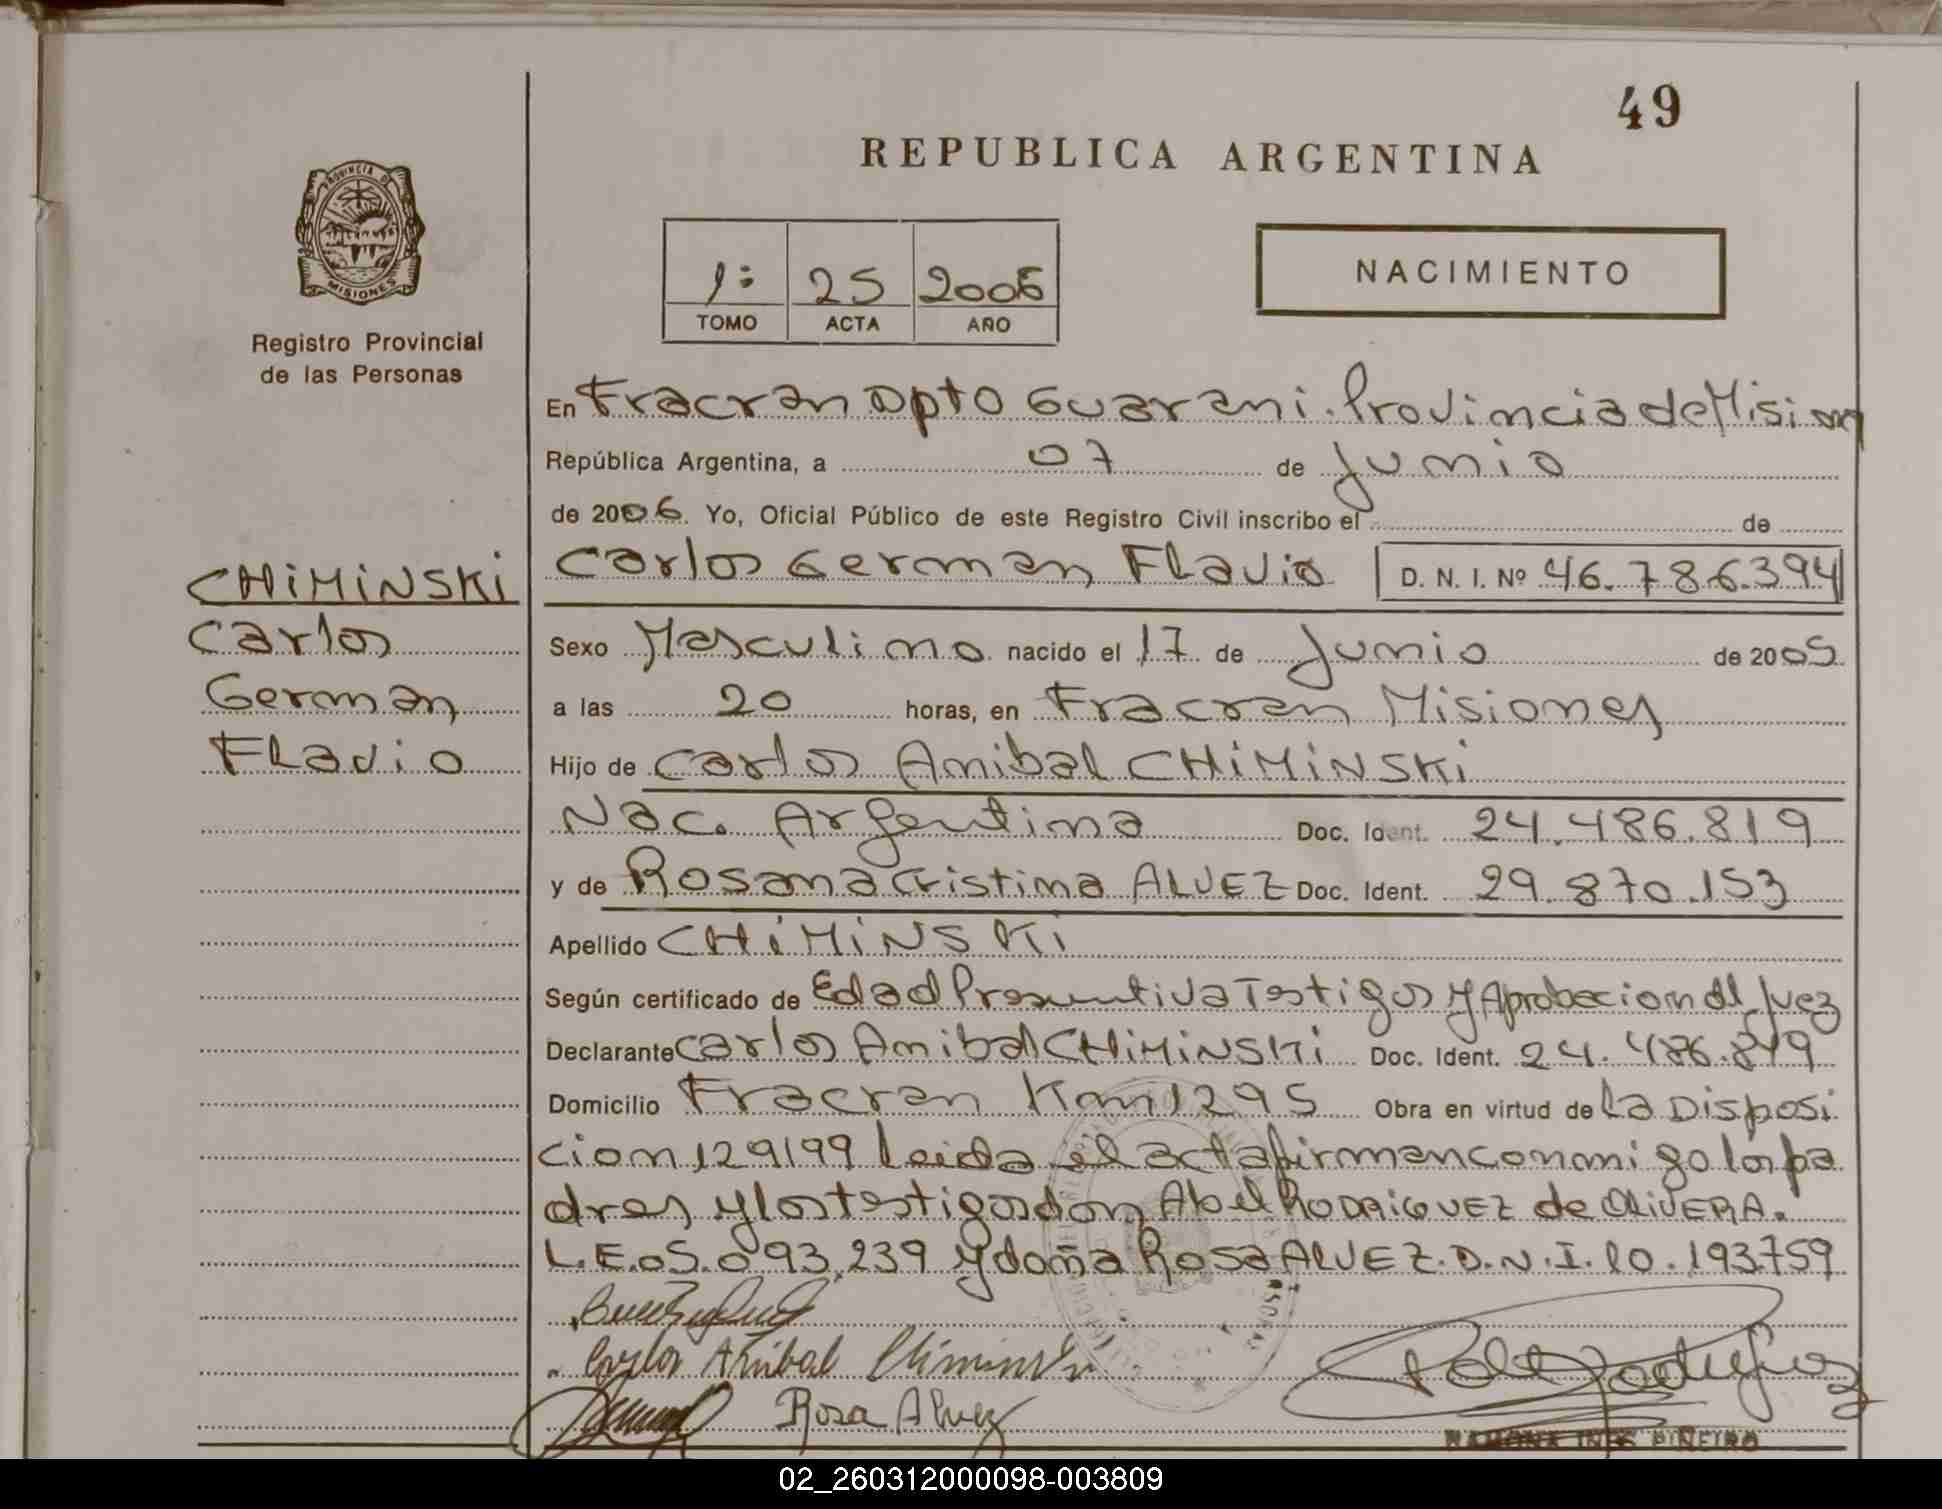 49
REPUBLICA ARGENTINA
PROVINCIA DE
MISIONES
Registro Provincial
de las Personas
1º 25 2006
TOMO ACTA AÑO
NACIMIENTO
En Fracran Dpto Guarani. Provincia de Mision
República Argentina, a 07 de Junio
de 2006. Yo, Oficial Público de este Registro Civil inscribo el de
Carlos German Flavio D. N. I. Nº 46.786.394
CHiMiNSKi
Carlos
German
Flavio
Sexo Masculino nacido el 17 de Junio de 2005
a las 20 horas, en Fracran Misiones
Hijo de Carlos Anibal CHiMiNSKi
Nac. Argentina Doc. Ident. 24.486.819
y de Rosana Cristina ALVEZ Doc. Ident. 29.870.153
Apellido CHiMiNSKi
Según certificado de Edad Presuntiva Testigos y Aprobacion del Juez
Declarante Carlos Anibal CHiMiNSKi Doc. Ident. 24.486.819
Domicilio Fracran Km 1295 Obra en virtud de La Disposi
cion 129/99 leida el acta firman conmigo los pa
dres y los testigos don Abel RODRiGUEZ de OLiVERA.
L.E. 05.093.239 y doña Rosa ALVEZ. D.N.I. 10.193759
Carlos Anibal Chiminski
Rosa Alvez
RAMONA INES PIÑEIRO
02_260312000098-003809